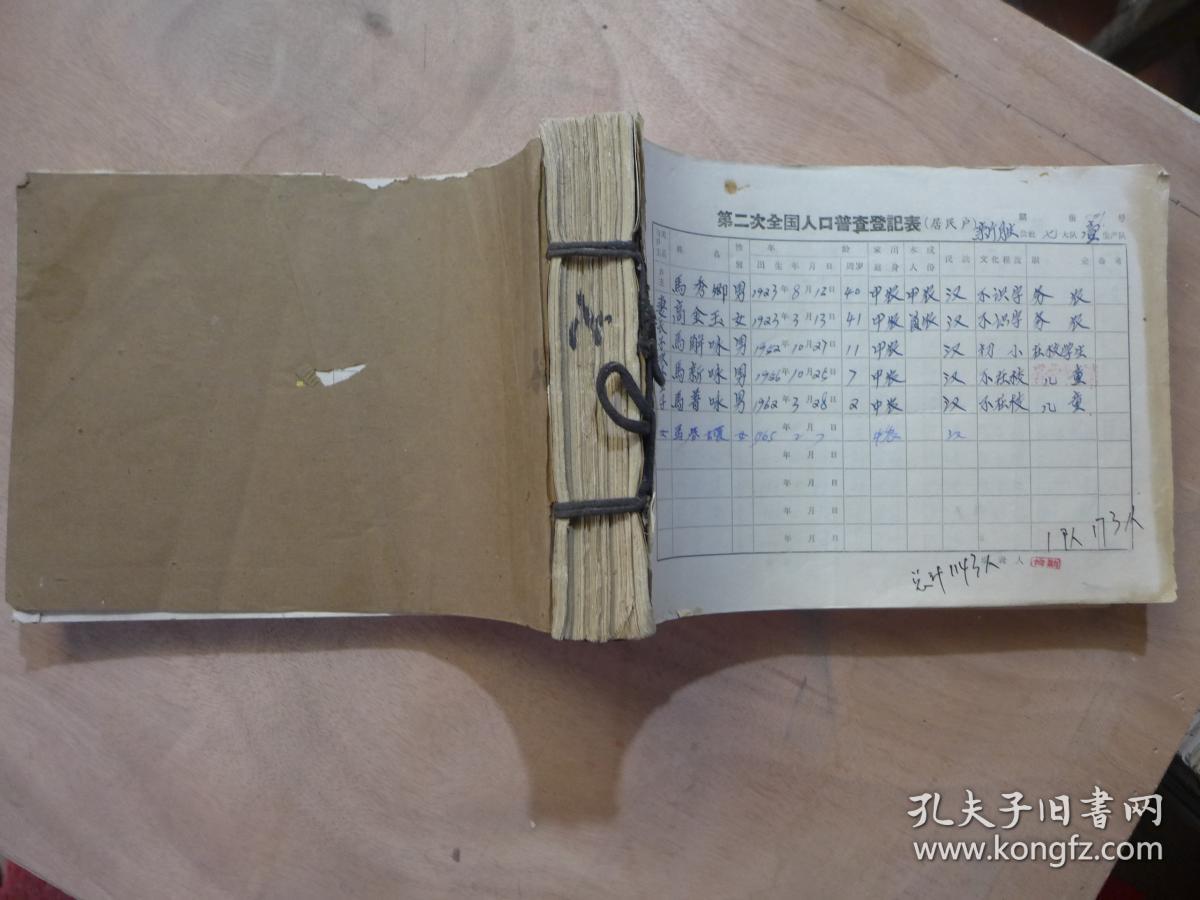 第二次全国人口普查登記表(居民户)
公社 七 大队 壹 生产队
姓 名 性别 年 齡 家庭出身 本人成份 民族 文化程度 職 业 备考
出生年月日 周岁
馬秀卿 男 1923年8月12日 40 中农 中农 汉 不识字 务 农
妻 高金玉 女 1923年3月13日 41 中农 汉 不识字 务 农
馬 咏 男 10月27日 11 中农 汉 初小 在校学生
馬新咏 男 10月25日 7 中农 汉 不在校 儿 童
子 馬普咏 男 1962年3月28日 2 中农 汉 不在校 儿 童
女 女 1965年2月7日 中农 汉
年 月 日
年 月 日
年 月 日
年 月 日
1队173人
总计1143人
人
孔夫子旧书网
www.kongfz.com